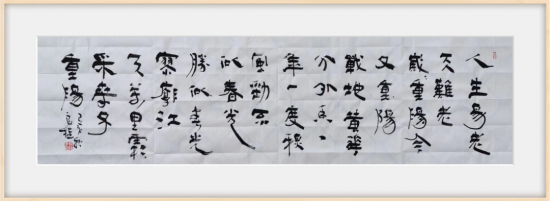 人生易老
天難老
歲重陽今
又重陽
戰地黃華
分外香一
年一度穐
風勁不
似春光
勝似春光
寥廓江
天萬里霜
采桑子
重陽